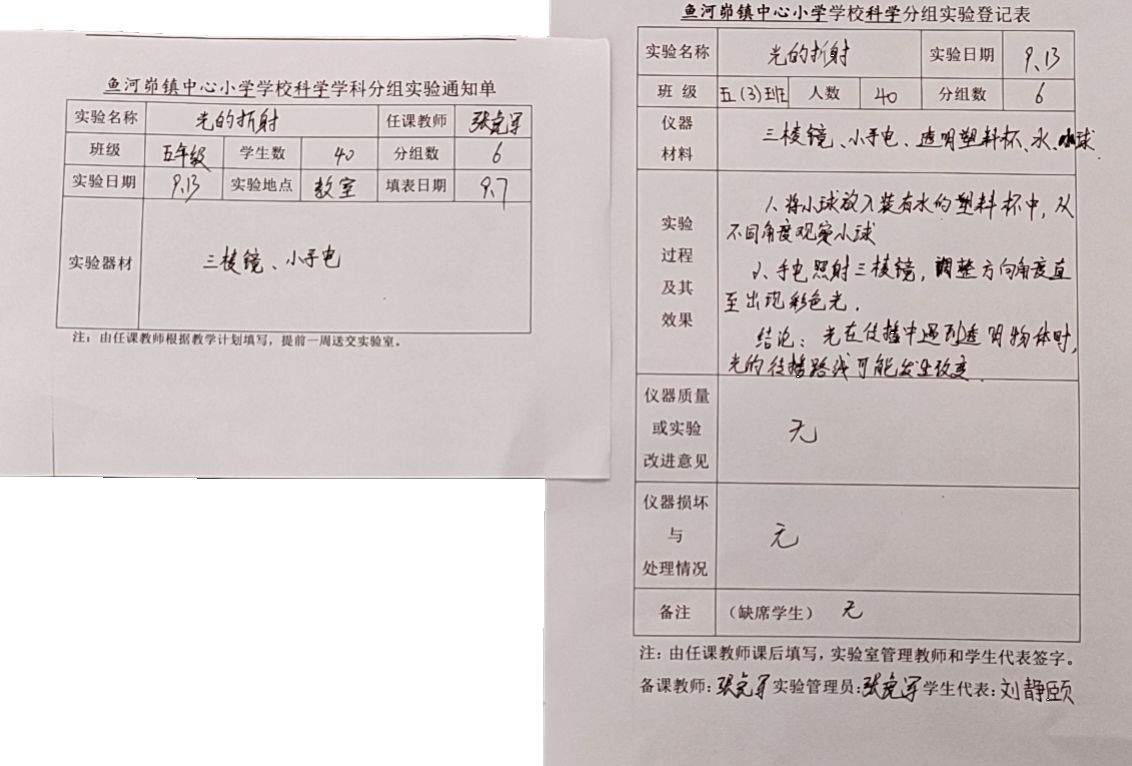 鱼河峁镇中心小学学校科学学科分组实验通知单
实验名称 光的折射 任课教师 张克军
班级 五年级 学生数 40 分组数 6
实验日期 9.13 实验地点 教室 填表日期 9.7
实验器材 三棱镜、小手电
注：由任课教师根据教学计划填写，提前一周送交实验室。
鱼河峁镇中心小学学校科学分组实验登记表
实验名称 光的折射 实验日期 9.13
班 级 五(3)班 人数 40 分组数 6
仪器
材料
三棱镜、小手电、透明塑料杯、水、小球
实验
过程
及其
效果
1、将小球放入装有水的塑料杯中，从
不同角度观察小球
2、手电照射三棱镜，调整方向角度直
至出现彩色光.
结论：光在传播中遇到透明物体时，
光的传播路线可能发生改变.
仪器质量
或实验
改进意见
无
仪器损坏
与
处理情况
无
备注 （缺席学生） 无
注：由任课教师课后填写，实验室管理教师和学生代表签字。
备课教师：张克军 实验管理员：张克军 学生代表：刘静颐